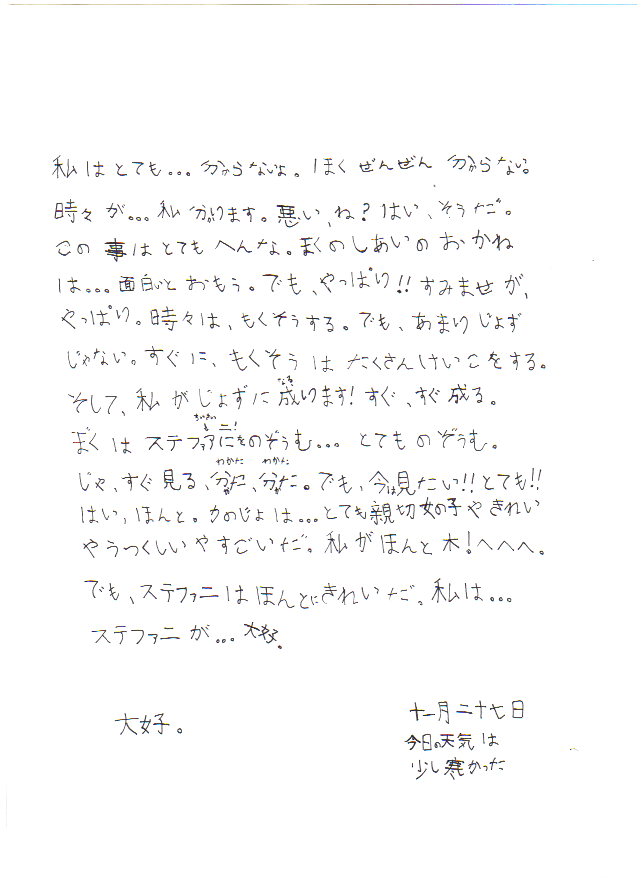 私はとても...分からないよ。ぼくぜんぜん分からない。
時々が...私分ります。悪い、ね?はい、そうだ。
この事はとてもへんな。ぼくのしあいのおかね
は...面白いとおもう。でも、やっぱり!!すみませが、
やっぱり。時々は、もくそうする。でも、あまりじょず
じゃない。すぐに、もくそうはたくさんけいこをする。
そして、私がじょずに成ります!すぐ、すぐ成る。
なる
ニ!
ぼくはステファアにをのぞうむ...とてものぞうむ。
わかた わかた
じゃ、すぐ見る、分かた、分かた。でも、今は見たい!!とても!!
はい、ほんと。かのじょは...とても親切女の子やきれい
やうつくしいやすごいだ。私がほんと木!へへへ。
でも、ステファニはほんとにきれいだ。私は...
ステファニが...
大好。
十一月二十七日
今日の天気は
少し寒かった